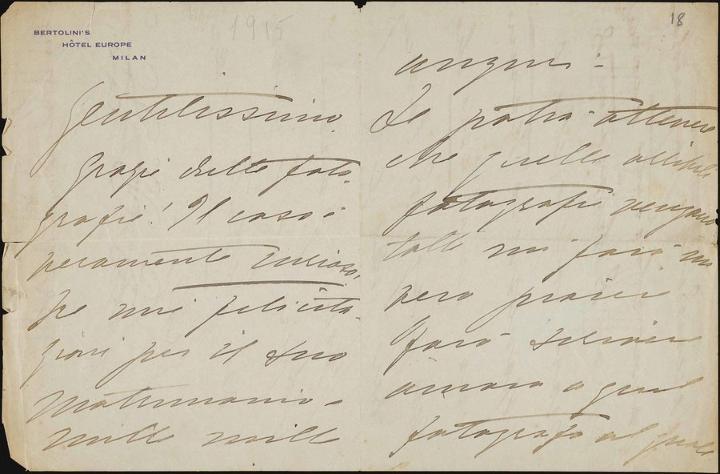 1915
18
BERTOLINI'S
HÔTEL EUROPE
MILAN
Gentilissimo,
Grazie delle foto-
grafie! Il caso è
veramente curioso,
Le mie felicita-
zioni per il suo
matrimonio -
mille mille
auguri -
Se potrà ottenere
che quelle
fotografie vengano
tolte mi farà un
vero piacere
Farò scrivere
ancora a quel
fotografo al quale